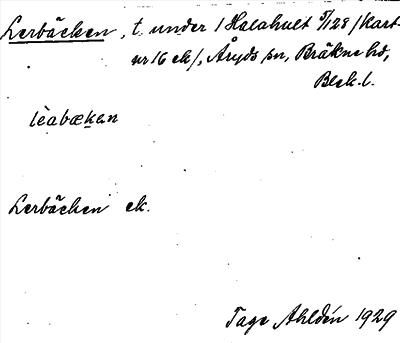 Lerbäcken, t. under 1 Halahult 5/128 /kart
nr 16 ek/, Åryds sn, Bräkne hd,
Blek. l.
lèabæḵen
Lerbäcken ek.
Tage Ahldén 1929